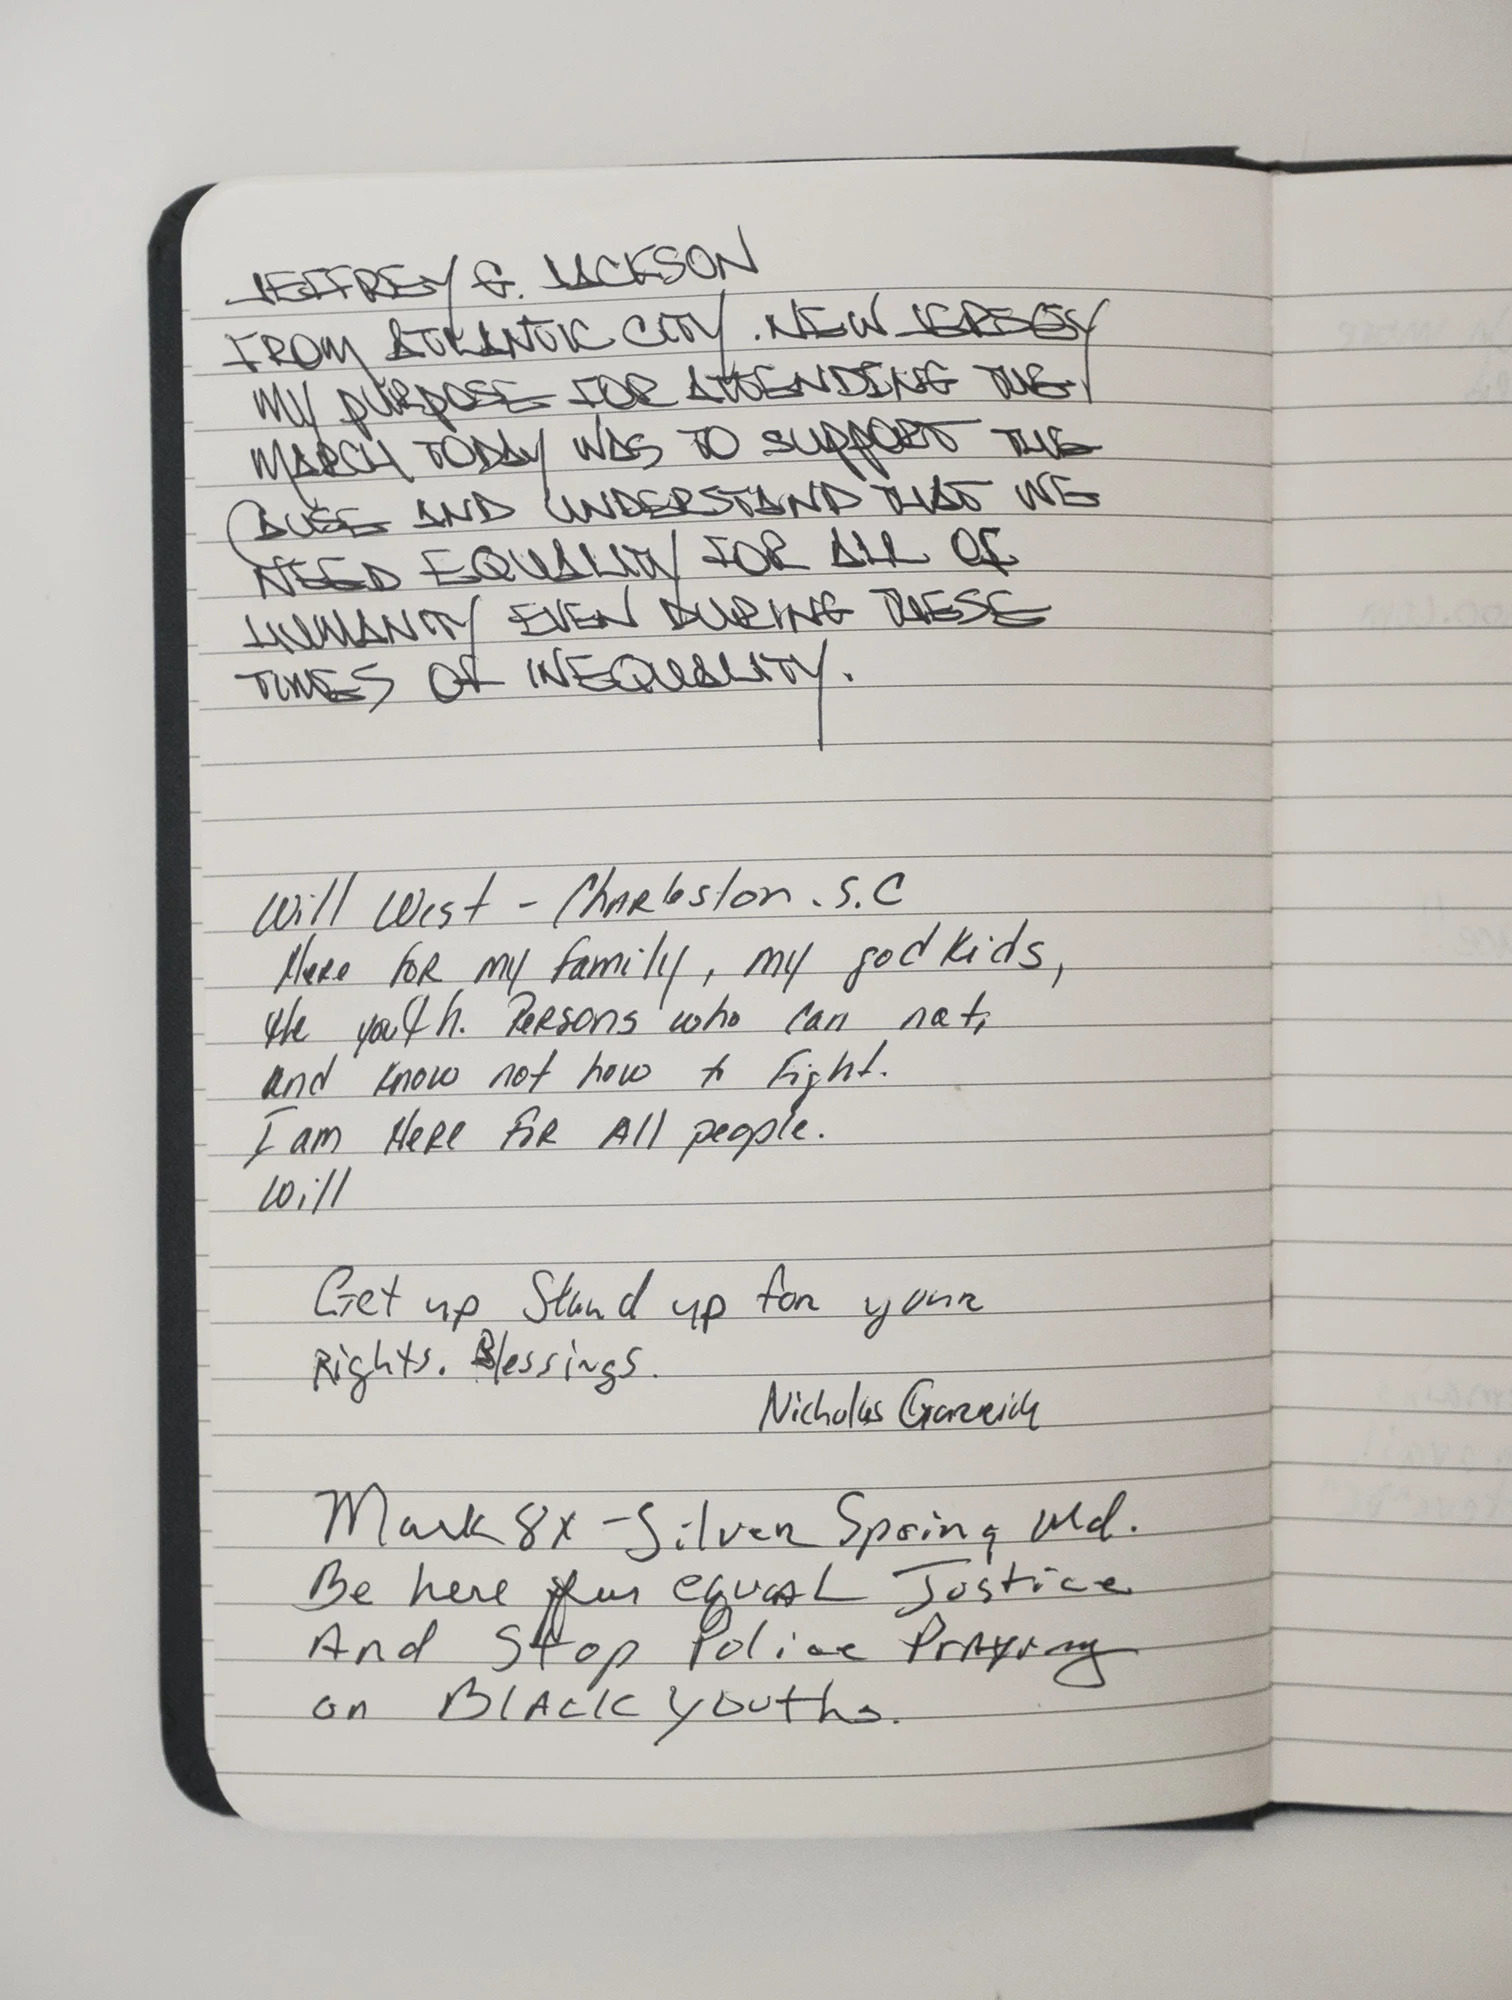 JEFFREY G. JACKSON
FROM ATLANTIC CITY. NEW JERSEY
MY PURPOSE FOR ATTENDING THE
MARCH TODAY WAS TO SUPPORT THE
CAUSE AND UNDERSTAND THAT WE
NEED EQUALITY FOR ALL OF
HUMANITY EVEN DURING THESE
TIMES OF INEQUALITY.
Will West - Charleston. S.C
Here for my family, my god kids,
the youth. Persons who can not,
and know not how to fight.
I am Here for All people.
Will
Get up Stand up for your
Rights. Blessings.
Nicholas Garrick
Mark 8x - Silver Spring Md.
Be here for equal Justice
And Stop Police Praying
on Black youths.